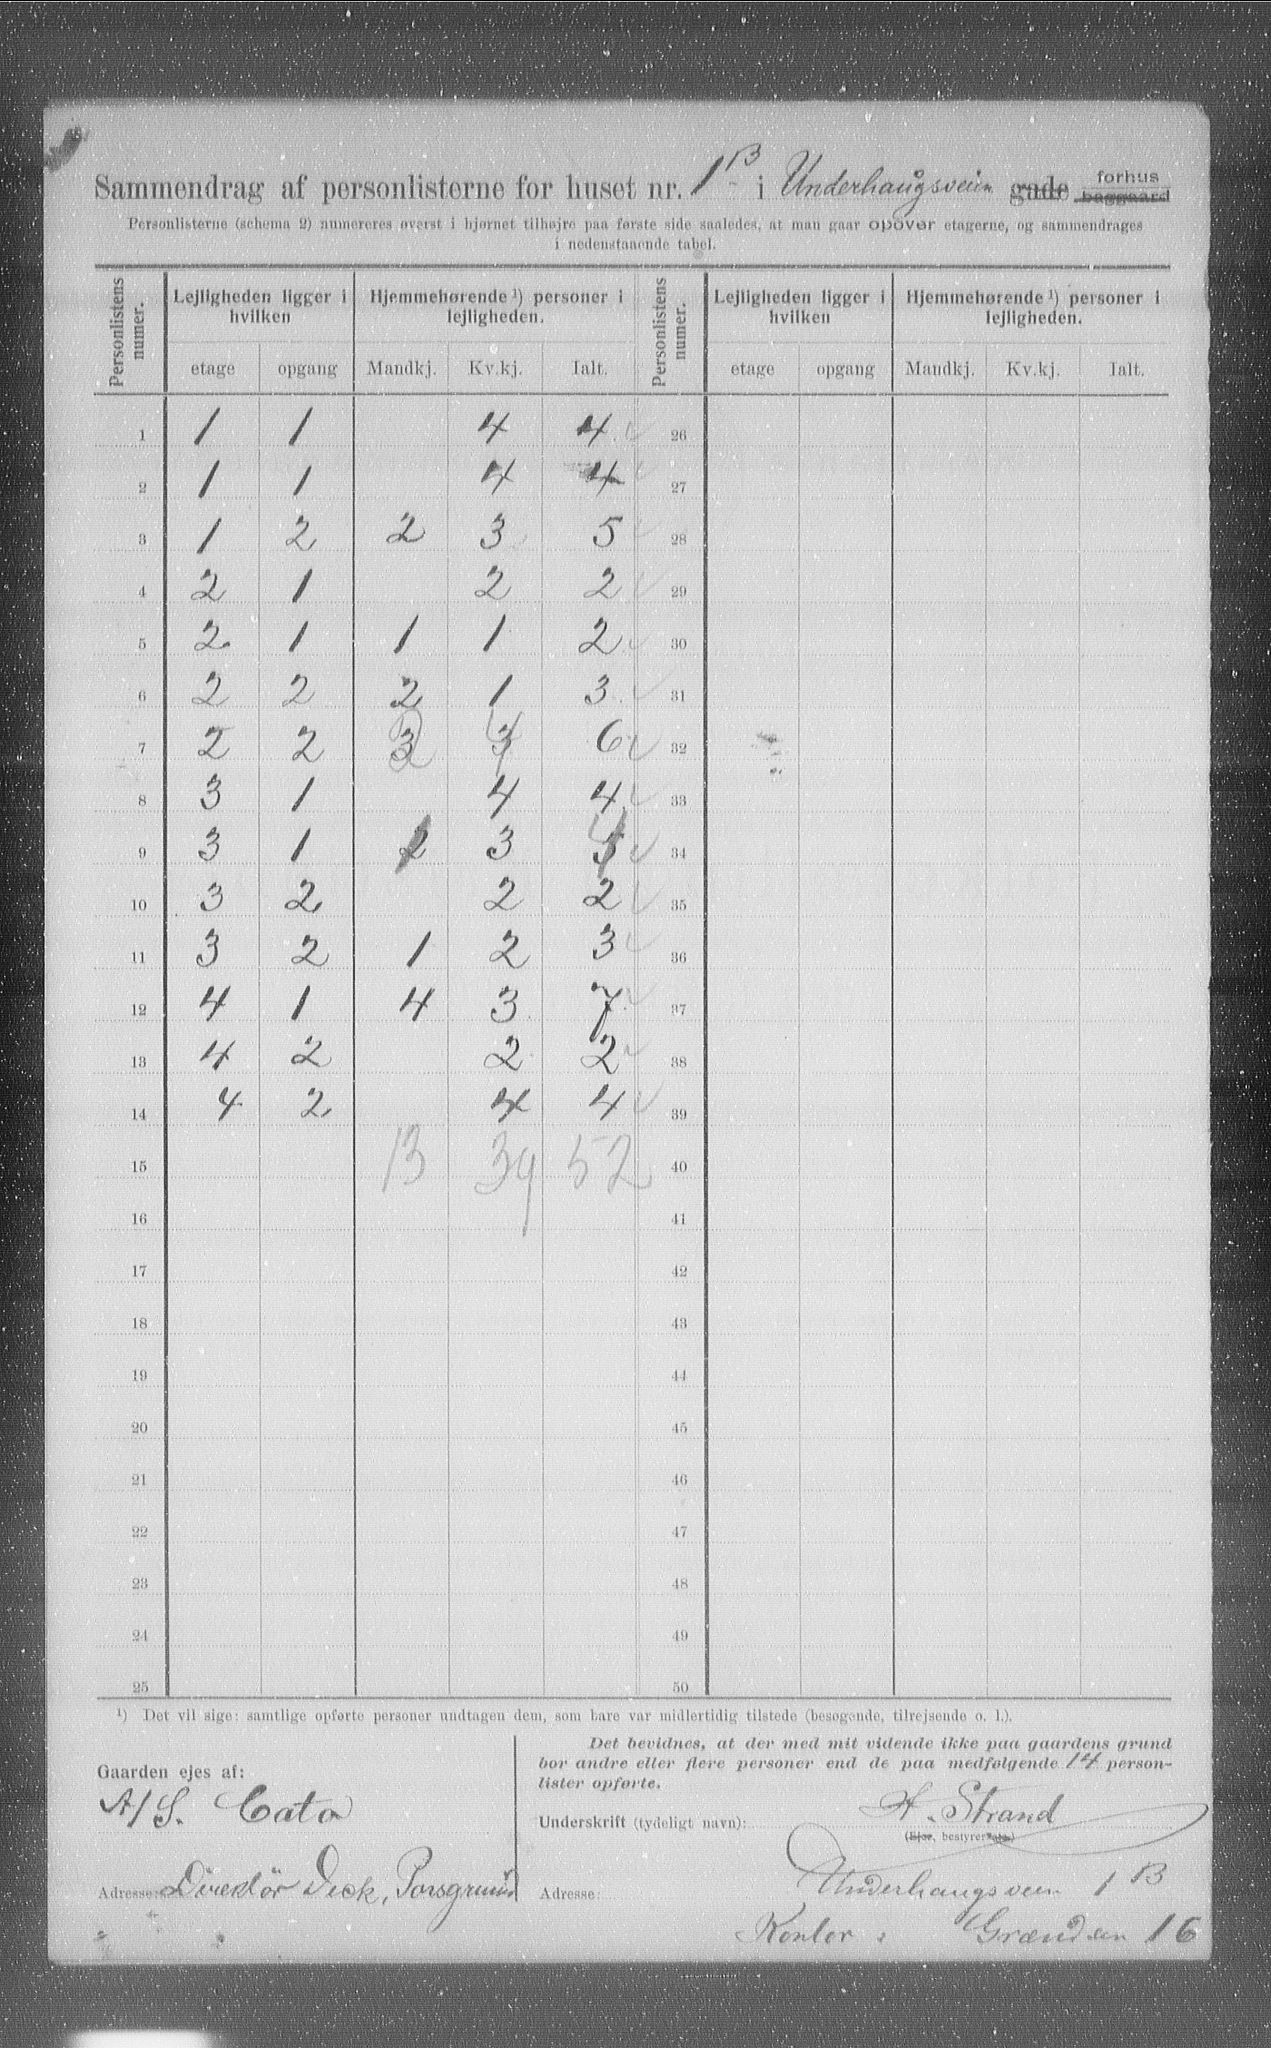 Sammendrag af personlisterne for huset nr. 1 B i Underhaugsveien gade forhus baggaard
Personlisterne (schema 2) numereres øverst i hjørnet tilhøjre paa første side saaledes, at man gaar opover etagerne, og sammendrages
i nedenstaaende tabel.
Personlistens numer. Lejligheden ligger i hvilken Hjemmehørende ¹) personer i lejligheden. Personlistens numer. Lejligheden ligger i hvilken Hjemmehørende ¹) personer i lejligheden.
etage opgang Mandkj. Kv.kj. Ialt. etage opgang Mandkj. Kv.kj. Ialt.
1 1 1 4 4 26
2 1 1 4 4 27
3 1 2 2 3 5 28
4 2 1 2 2 29
5 2 1 1 1 2 30
6 2 2 2 1 3 31
7 2 2 2 4 6 32
8 3 1 4 4 33
9 3 1 1 3 4 34
10 3 2 2 2 35
11 3 2 1 2 3 36
12 4 1 4 3 7 37
13 4 2 2 2 38
14 4 2 4 4 39
15 13 39 52 40
16 41
17 42
18 43
19 44
20 45
21 46
22 47
23 48
24 49
25 50
¹) Det vil sige: samtlige opførte personer undtagen dem, som bare var midlertidig tilstede (besøgende, tilrejsende o. l.).
Gaarden ejes af:
A/S. Cato
Adresse: Direktør Deck, Porsgrund
Det bevidnes, at der med mit vidende ikke paa gaardens grund
bor andre eller flere personer end de paa medfølgende 14 person-
lister opførte.
Underskrift (tydeligt navn): A. Strand
(Ejer, bestyrer etc.)
Adresse: Underhaugsveien 1 B
Kontor: Grændsen 16